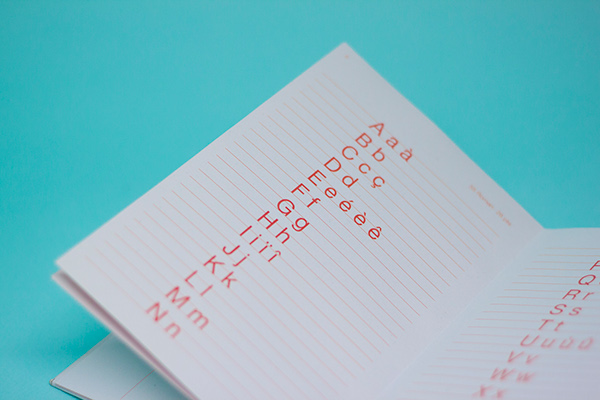 Aaà
Bb
Ccç
Dd
Eeéèê
Ff
Gg
Hh
Iiïî
Jj
Kk
Ll
Mm
Nn
P
Q
Rr
Ss
Tt
Uuùû
Vv
Ww
Xx